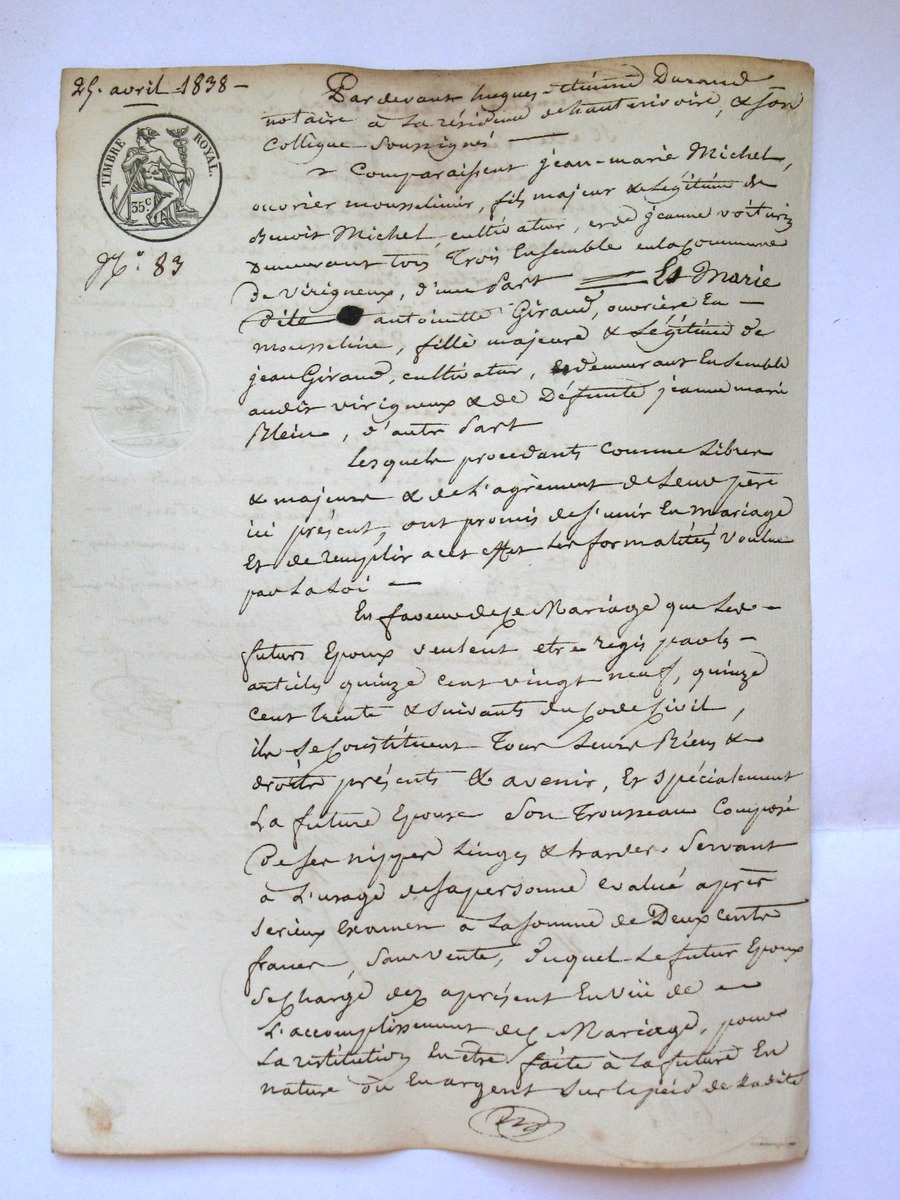 25. avril 1838 -
TIMBRE ROYAL.
35c
N° 83
Pardevant hugues-étienne Durand
notaire à La résidence de hauterivoire, & Son
Collègue Soussignés —
Comparaissent jean-marie Michel,
ouvrier mousselinier, fils majeur & Légitime de
Benoit Michel, cultivateur, et de jeanne voituriz
Demeurant tous Trois Ensemble en la Commune
de virigneux, d'une Part = Et Marie
Dite antoinette Giraud, ouvrière En —
mousseline, fille majeure & Légitime de
jean Giraud, cultivateur, demeurant Ensemble
audit virigneux & de Défunte jeanne marie
Blein, d'autre Part
Lesquels procédants Comme Libres
& majeurs & de L'agrèment de Leur père
ici présent, ont promis de S'unir En mariage
Et de remplir a cet effet Les formalités voulues
par La Loi —
En faveur de Ce Mariage que Les -
futurs Epoux veulent etre regis par les -
articles quinze cent vingt neuf, quinze
cent trente & suivants du Code Civil,
ils Se Constituent Tous Leurs Biens &
droits présents & avenir, Et spécialement
La future Epouse Son Trousseau Composé
De Ses nippes Linges & hardes Servant
à L'usage de Sa personne evalué après
Serieux Examen à La Somme de Deux cents
francs, Sans vente, Duquel Le futur Epoux
Se Charge dez aprésent En vüe de —
L'accomplissement de Ce Mariage, pour
La restitution En être faite à La future En
nature où En argent Sur le pied de Ladite